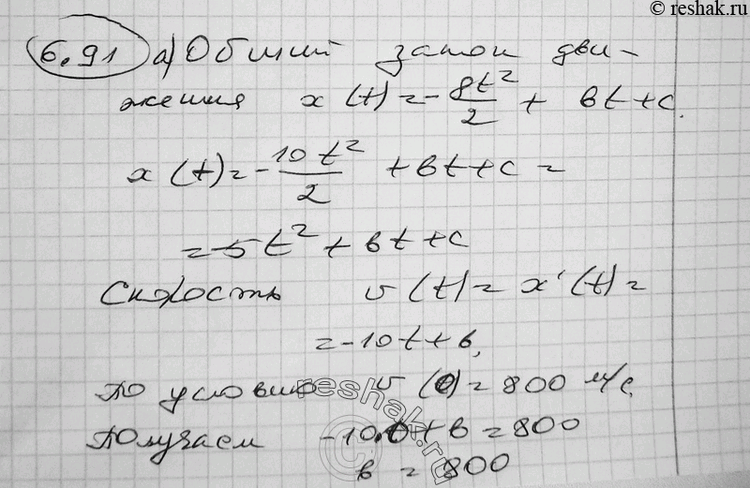 © reshak.ru
6.91 а) Общий закон дви-
жения x(t) = -8t²/2 + bt + c.
x(t) = -10t²/2 + bt + c =
= -5t² + bt + c
Скорость v(t) = x'(t) =
= -10t + b,
По условию v(0) = 800 м/с
Получаем -10·0 + b = 800
b = 800
reshak.ru